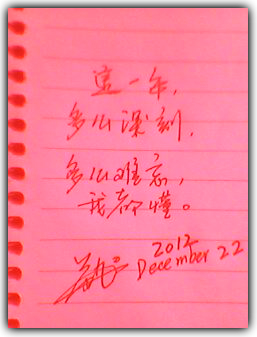 这一年，
多么深刻，
多么难忘，
我都懂。
2012
December 22